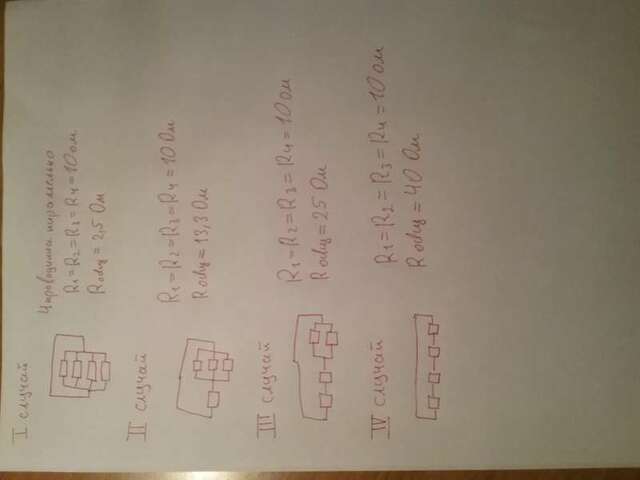 I случай
Проводники паралельно
R1=R2=R3=R4=10 ом.
Rобщ=2,5 Ом
II случай
R1=R2=R3=R4=10 Ом
Rобщ=13,3 Ом
III случай
R1=R2=R3=R4=10 ом
Rобщ=25 Ом
IV случай
R1=R2=R3=R4=10 ом
Rобщ=40 Ом